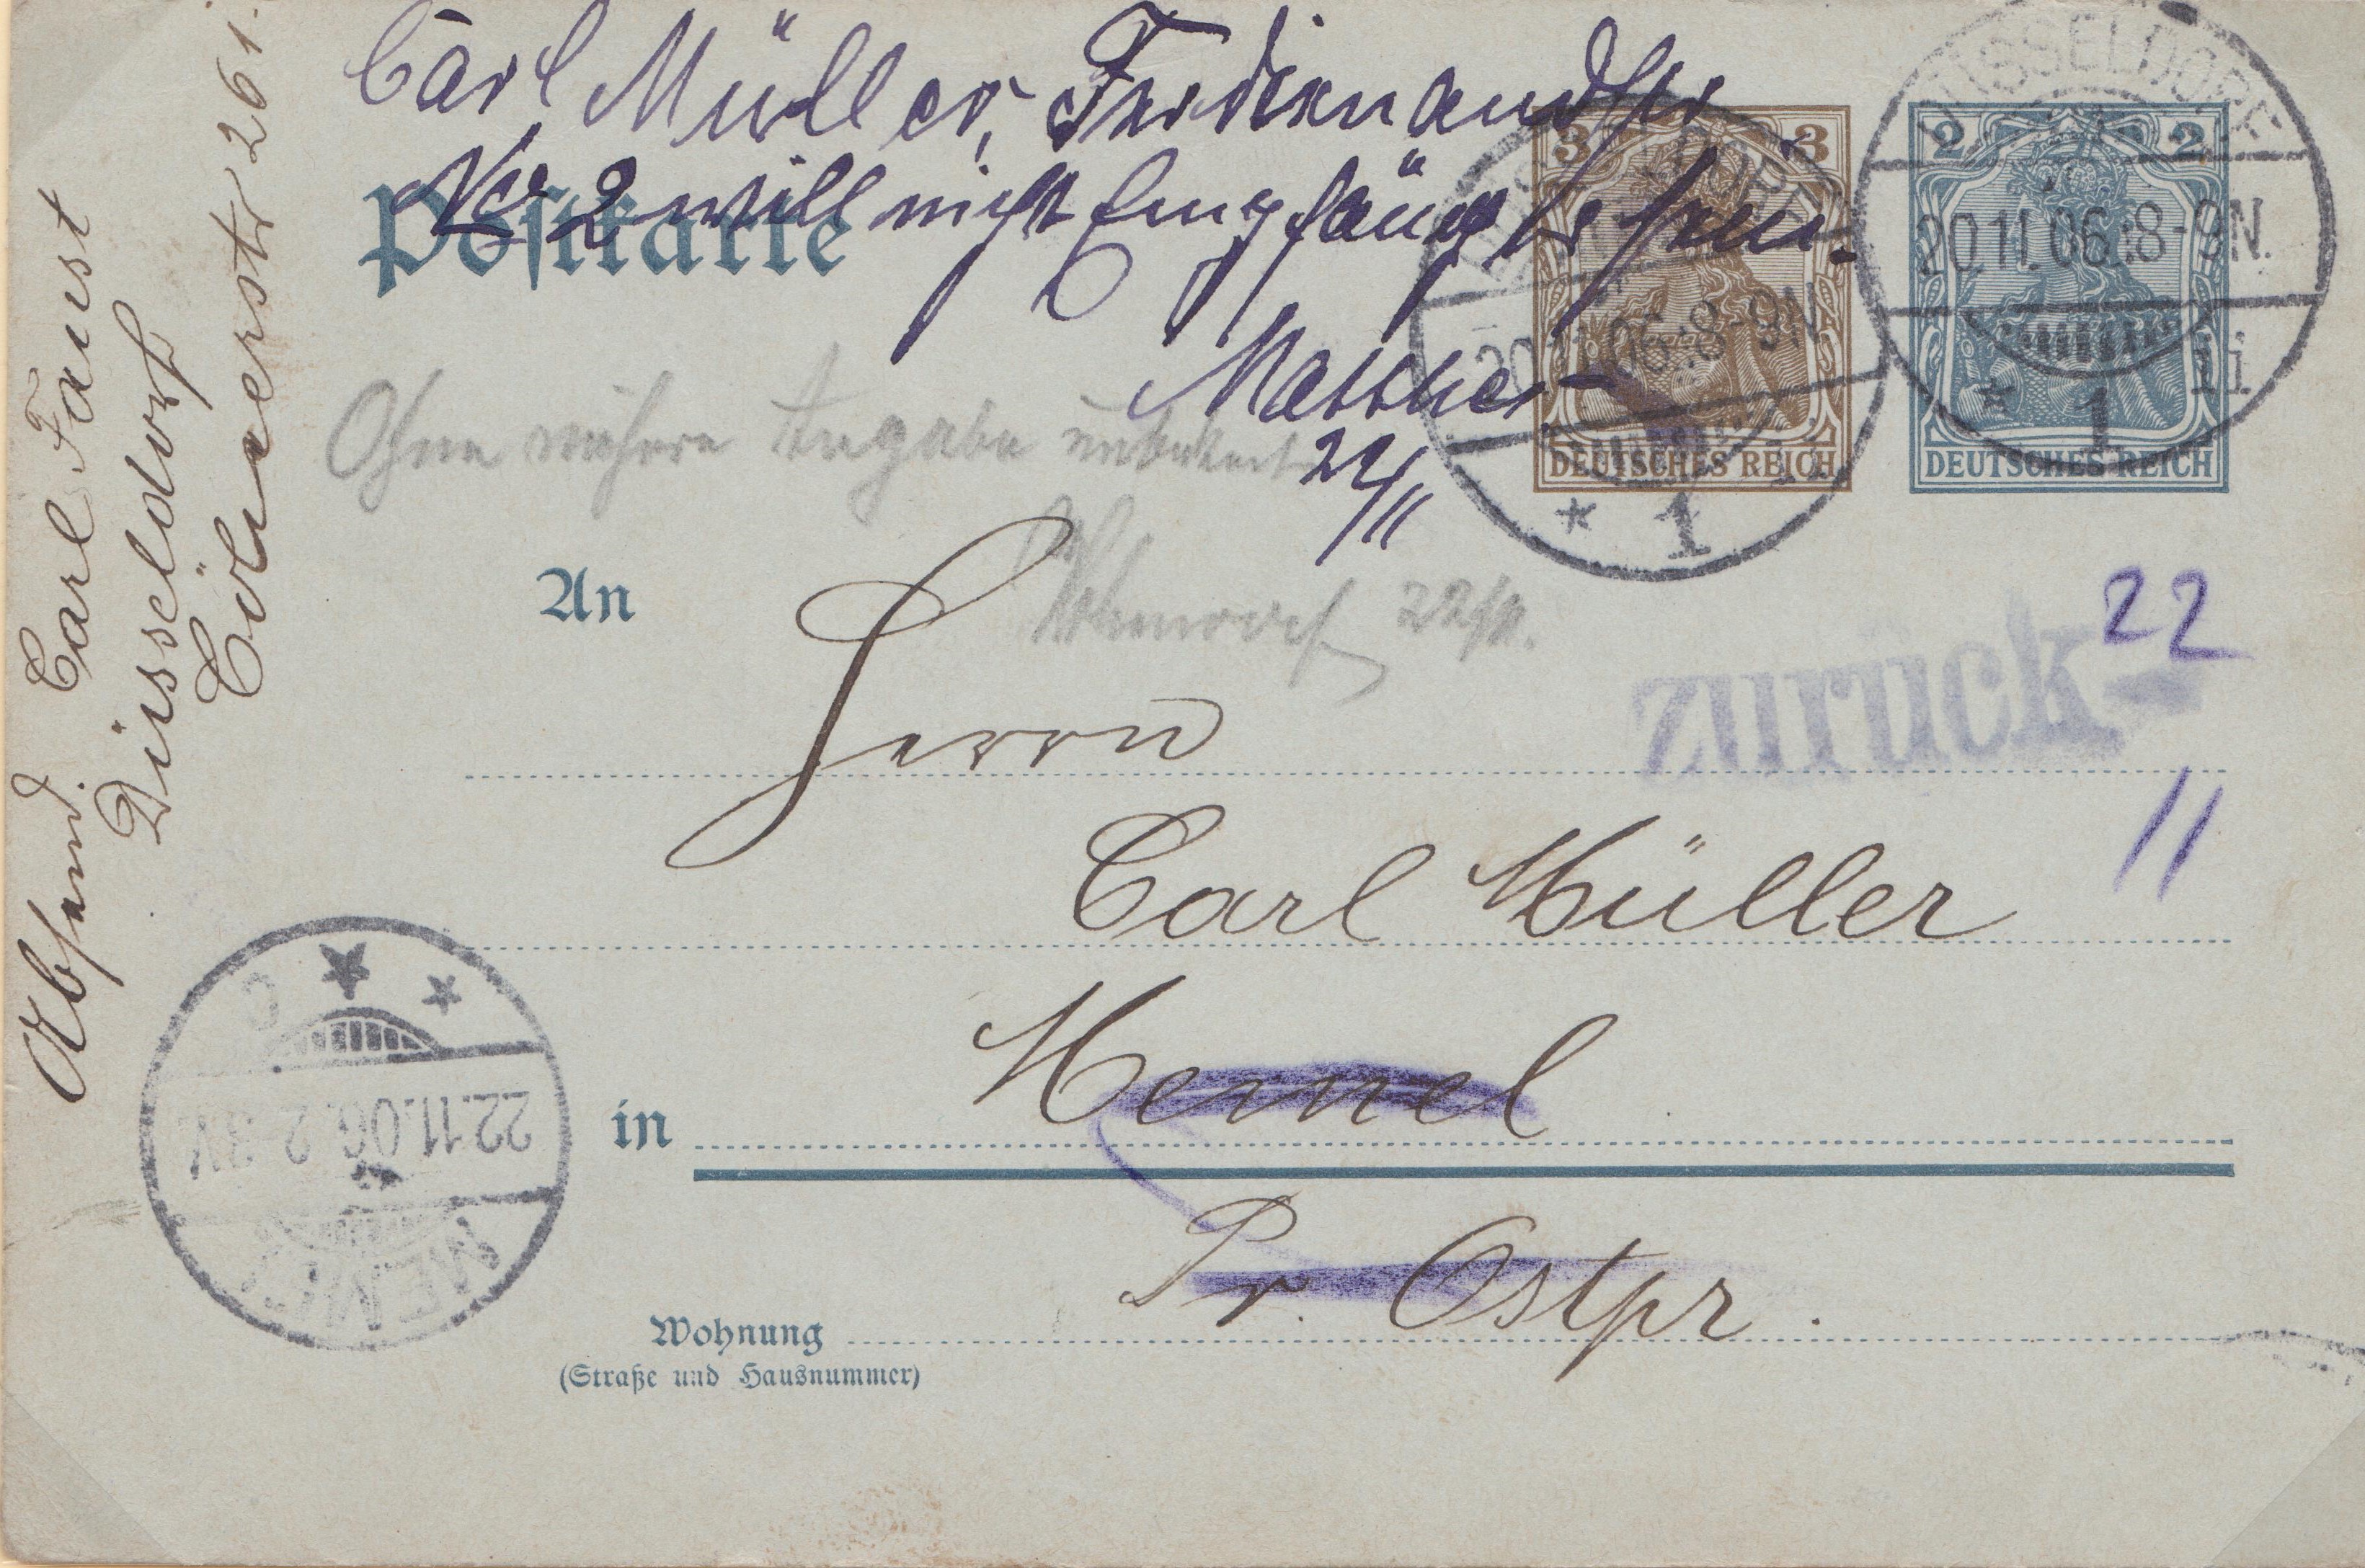 Carl Müller, Ferdinandstr
No 2 will nicht Empfänger sein.
22/11
Postkarte
Ohne nähere Angabe unbekannt
22/11.
3 3
DEUTSCHES REICH
2 2
DEUTSCHES REICH
DÜSSELDORF
20.11.06.8-9N.
* 1
DÜSSELDORF
20.11.06.8-9N.
* 1 i
Absend. Carl Faust
Düsseldorf
Cölnerstr 261.
An
Herrn
zurück
22
11
Carl Müller
in Memel
Pr. Ostpr.
Wohnung
(Straße und Hausnummer)
MEMEL
22.11.06. 2-3N.